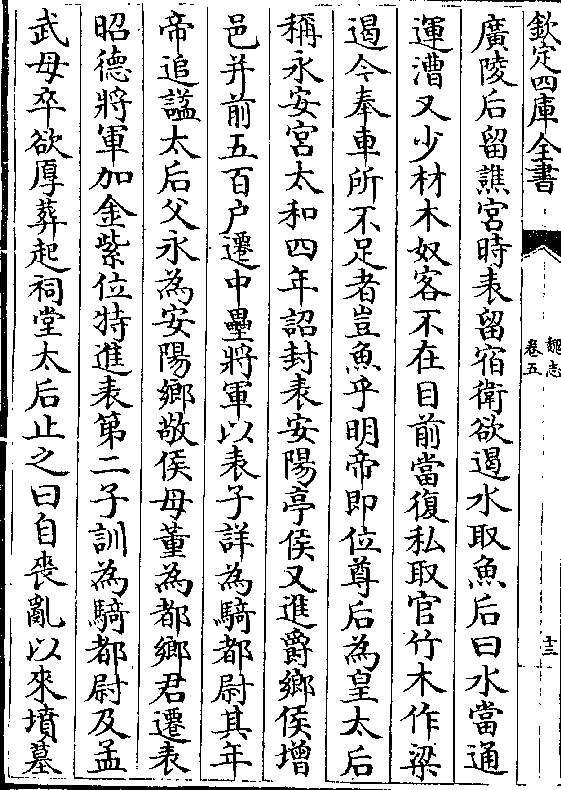 欽定四庫全書
魏志
卷五
十三
廣陵后留譙宮時表留宿衛欲遏水取魚后曰水當通
運漕又少材木奴客不在目前當復私取官竹木作梁
遏今奉車所不足者豈魚乎明帝即位尊后為皇太后
稱永安宮太和四年詔封表安陽亭侯又進爵鄉侯增
邑并前五百户遷中壘將軍以表子詳為騎都尉其年
帝追諡太后父永為安陽鄉敬侯母董為都鄉君遷表
昭德將軍加金紫位特進表第二子訓為騎都尉及孟
武母卒欲厚葬起祠堂太后止之曰自喪亂以來墳墓